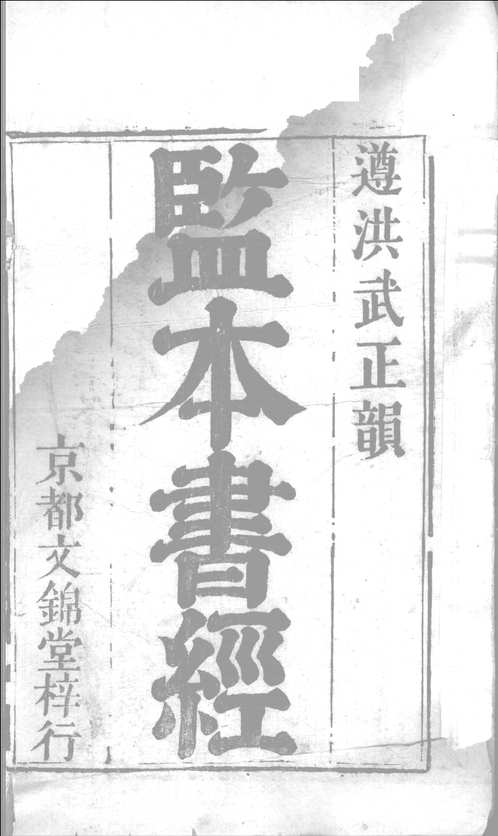 遵洪武正韻
監本書經
京都文錦堂梓行